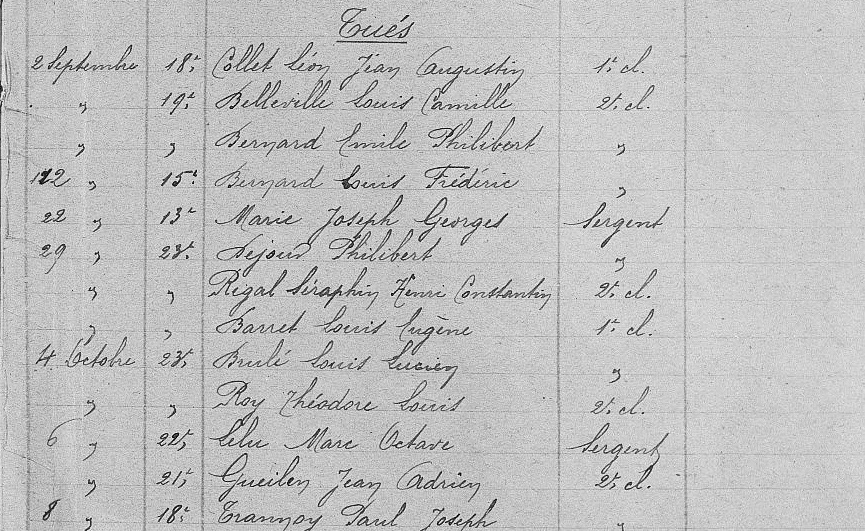 Tués
2 Septembre 18e Collet Léon Jean Augustin 1e cl.
" 19e Belleville Louis Camille 2e cl.
" " Bernard Emile Philibert "
12 " 15e Bernard Louis Frédéric "
22 " 13e Marie Joseph Georges Sergent
29 " 23e Dejour Philibert "
" " Rigal Séraphin Henri Constantin 2e cl.
" " Barret Louis Eugène 1e cl.
4 Octobre 23e Brulé Louis Lucien "
" " Roy Théodore Louis 2e cl.
6 " 22e Lelu Marc Octave Sergent
" 21e Gueilen Jean Adrien 2e cl.
8 " 18e Trannoy Paul Joseph "